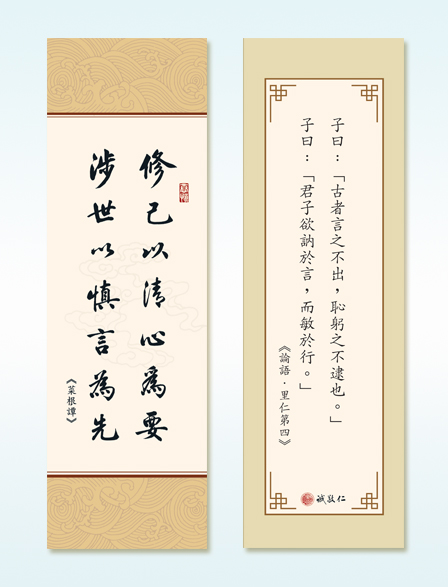 修己以清心為要
涉世以慎言為先
《菜根譚》
子曰：「古者言之不出，恥躬之不逮也。」
子曰：「君子欲訥於言，而敏於行。」
《論語．里仁第四》
誠敬仁